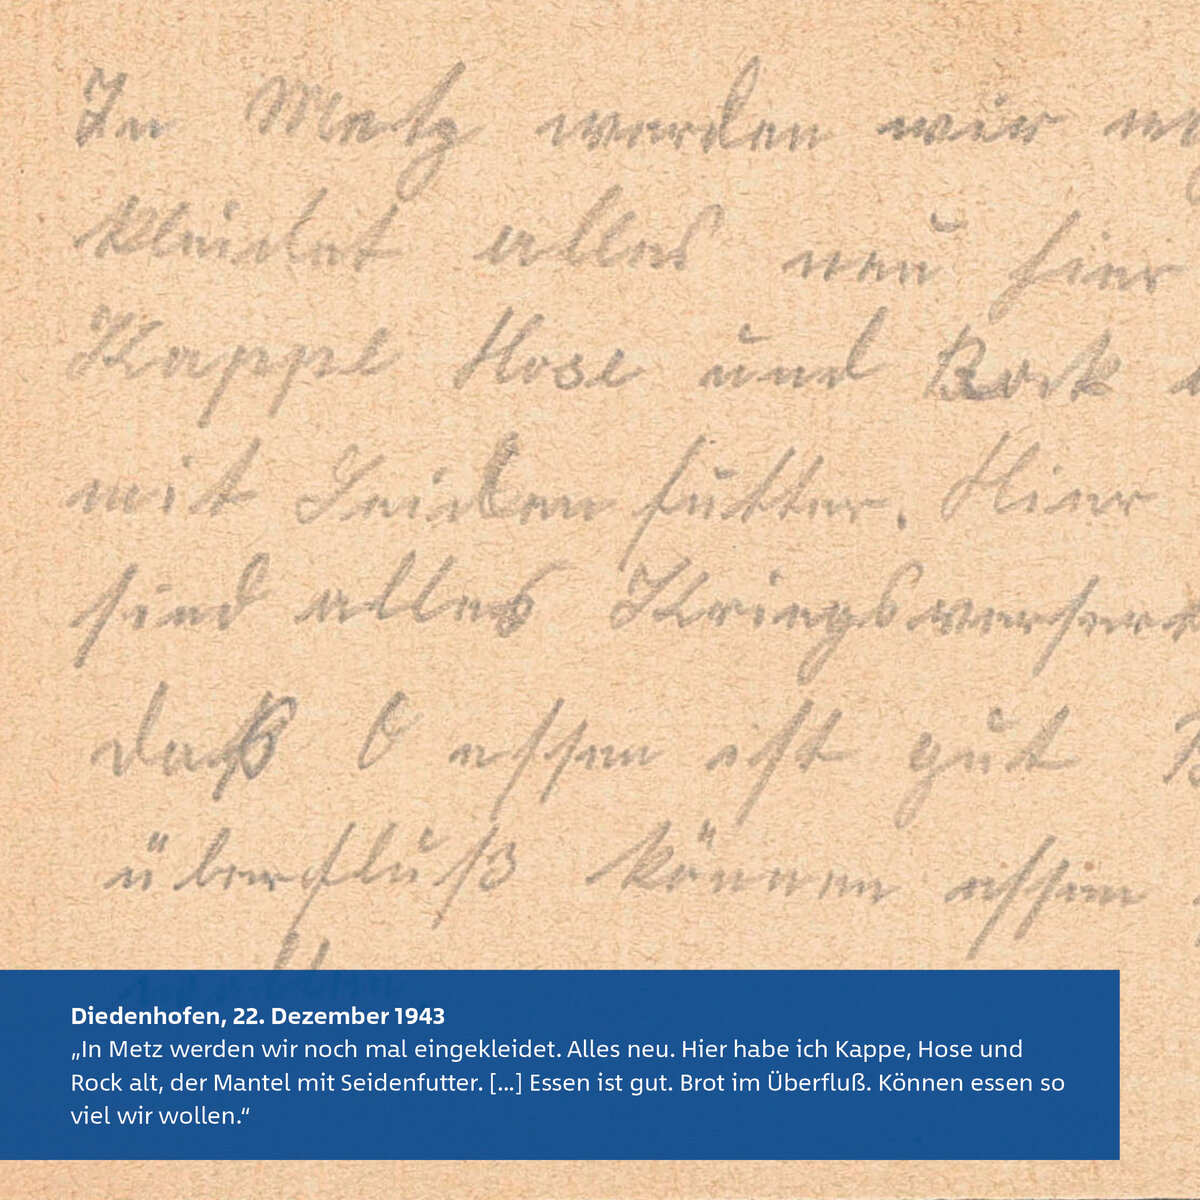 In Metz werden wir
kleidet alles neu hier
Kappe Hose und Rock
mit Seidenfutter. Hier
sind alles Kriegsverser
daß O essen ist gut
überfluß können essen
wollen
Diedenhofen, 22. Dezember 1943
„In Metz werden wir noch mal eingekleidet. Alles neu. Hier habe ich Kappe, Hose und
Rock alt, der Mantel mit Seidenfutter. [...] Essen ist gut. Brot im Überfluß. Können essen so
viel wir wollen.“